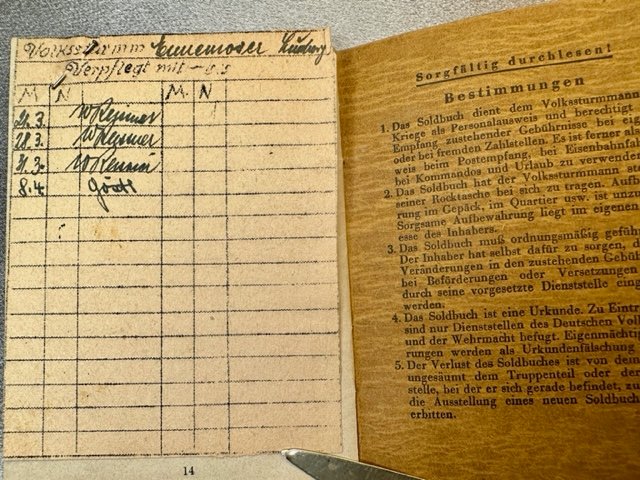 Volkssturmm Ennemoser Ludwig
Verpflegt mit
M. N M. N
28.3.
31.3.
8.4. Göstl
14
Sorgfältig durchlesen!
Bestimmungen
1. Das Soldbuch dient dem Volkssturmmann
Kriege als Personalausweis und berechtigt
Empfang zustehender Gebührnisse bei eig
oder bei fremden Zahlstellen. Es ist ferner als
weis beim Postempfang, bei Eisenbahnfah
bei Kommandos und Urlaub zu verwende
2. Das Soldbuch hat der Volkssturmmann ste
seiner Rocktasche bei sich zu tragen. Aufb
rung im Gepäck, im Quartier usw. ist unzu
Sorgsame Aufbewahrung liegt im eigenen
esse des Inhabers.
3. Das Soldbuch muß ordnungsmäßig gefüh
Der Inhaber hat selbst dafür zu sorgen, d
Veränderungen in den zustehenden Gebüh
bei Beförderungen oder Versetzungen
durch seine vorgesetzte Dienststelle eing
werden.
4. Das Soldbuch ist eine Urkunde. Zu Eintr
sind nur Dienststellen des Deutschen Vol
und der Wehrmacht befugt. Eigenmächtig
rungen werden als Urkundenfälschung
5. Der Verlust des Soldbuches ist von dem
ungesäumt dem Truppenteil oder der
stelle, bei der er sich gerade befindet, zu
die Ausstellung eines neuen Soldbuch
erbitten.